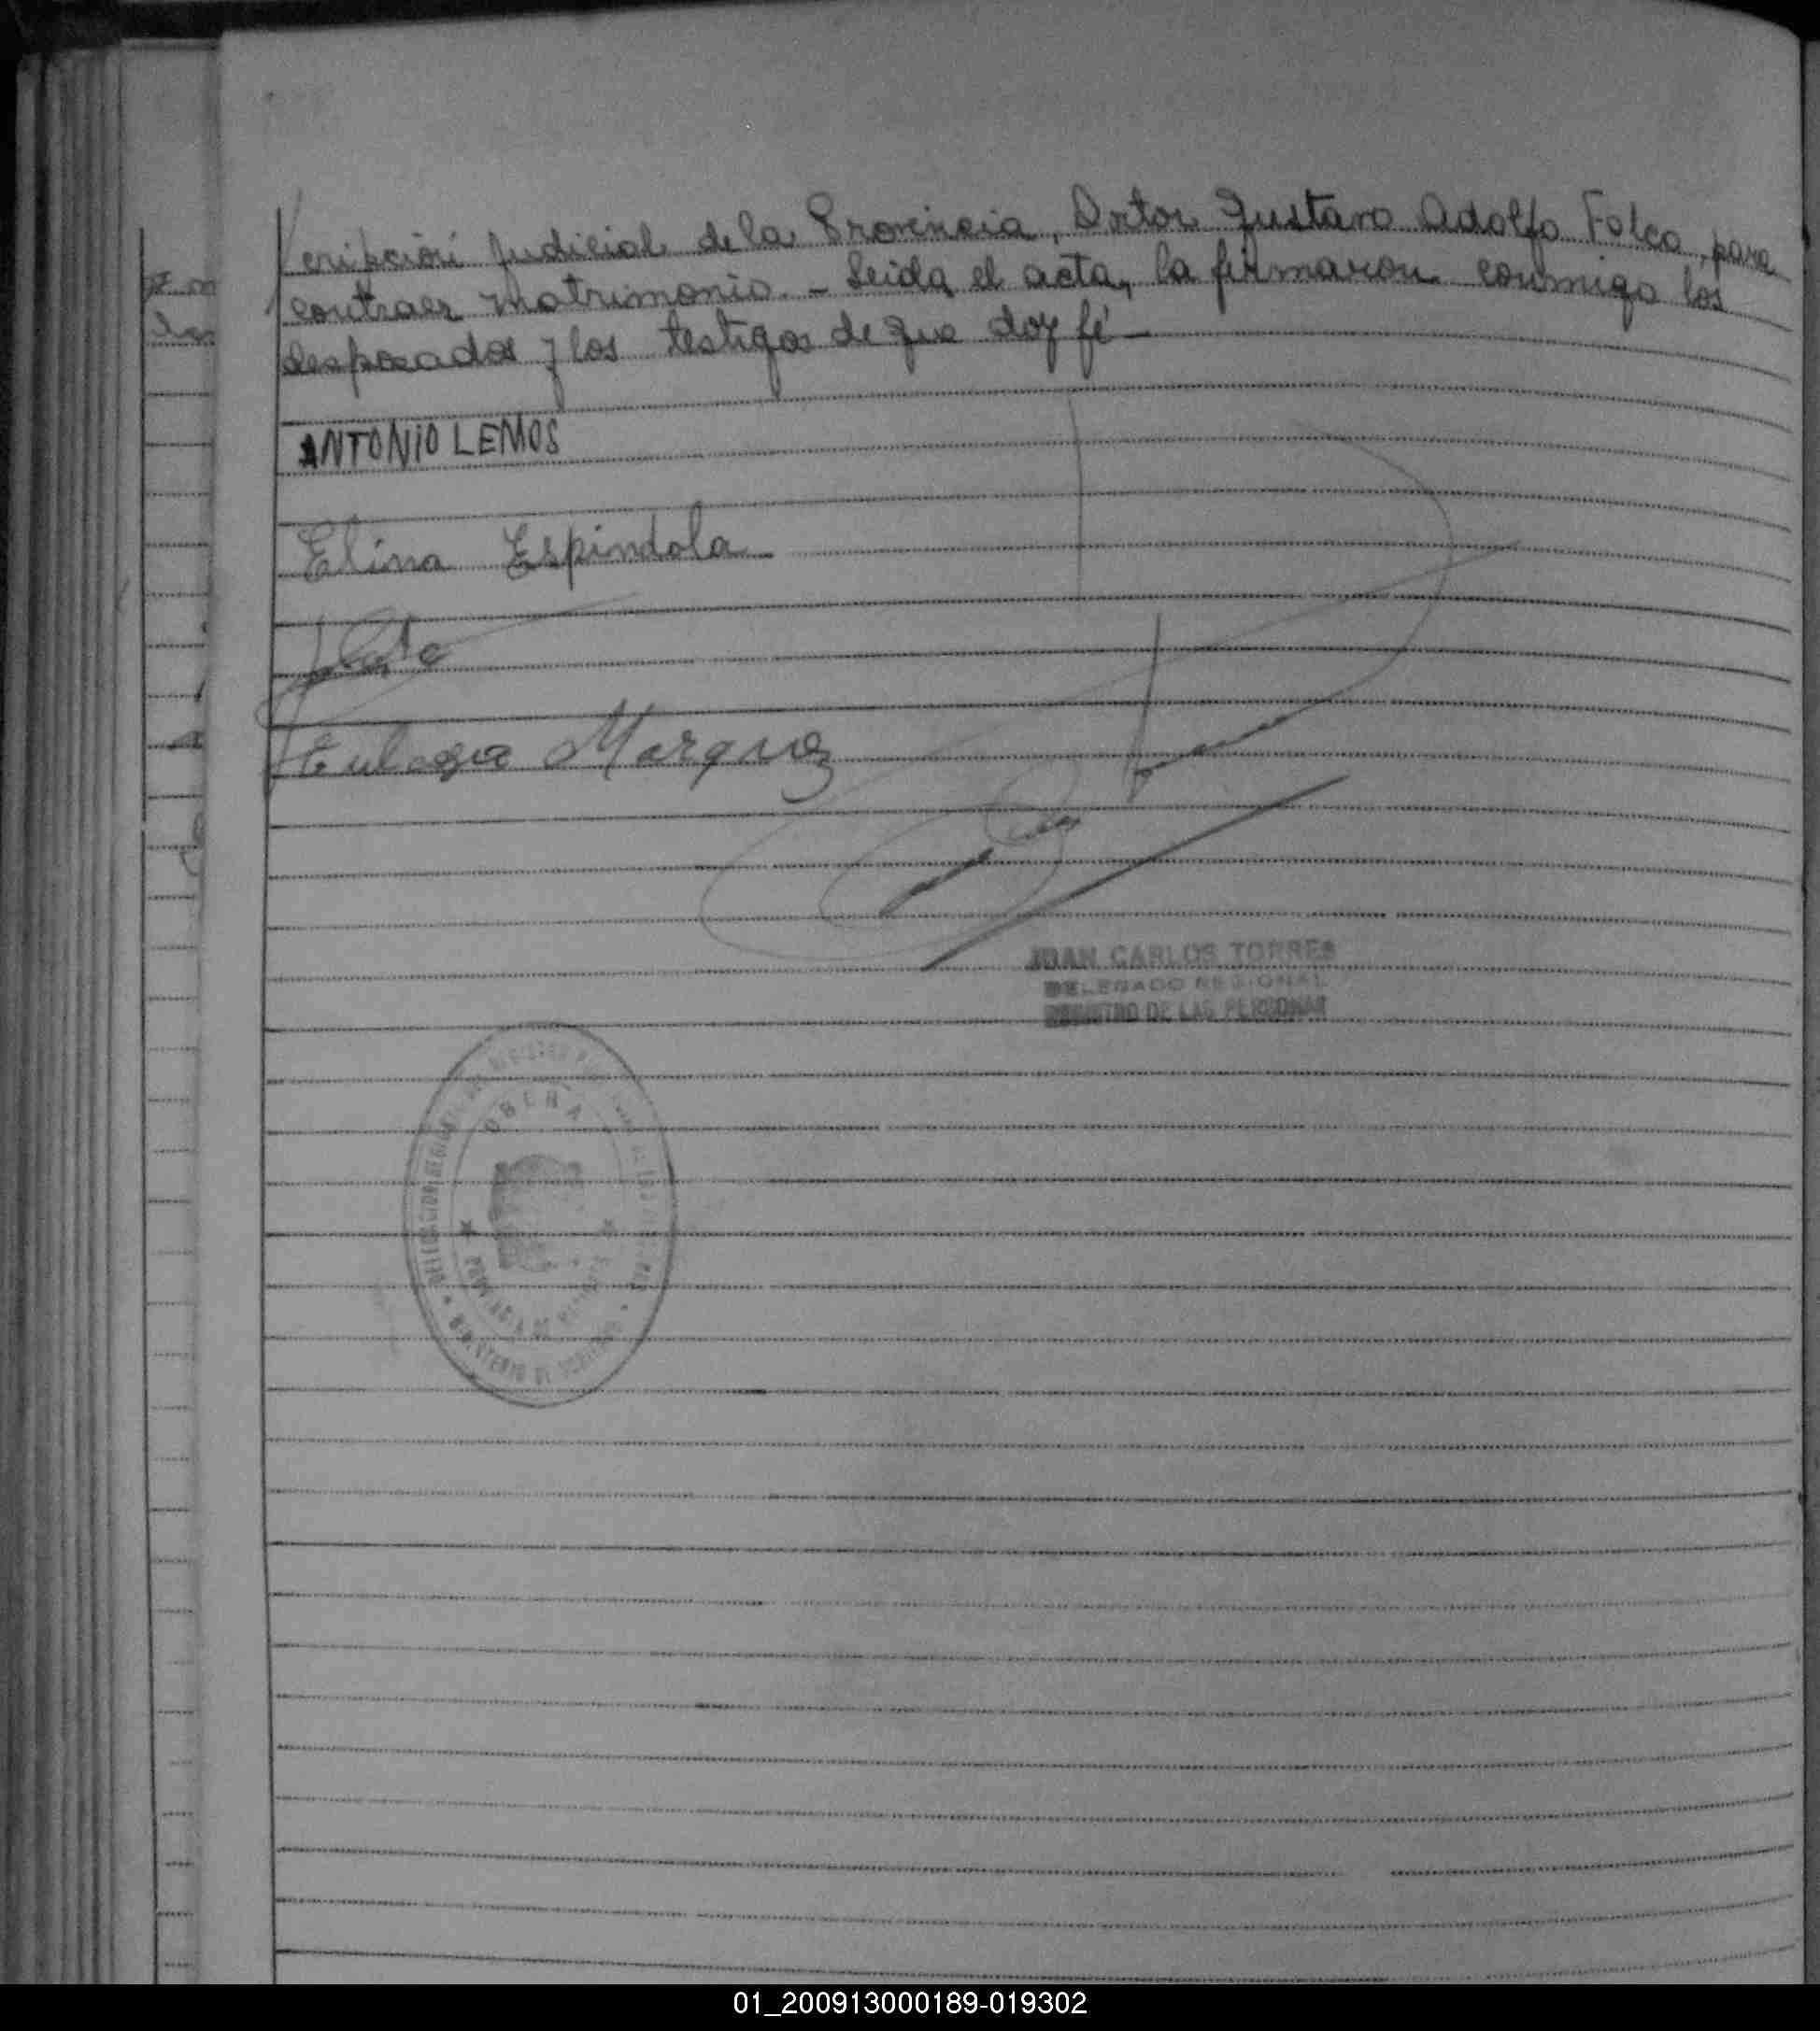 cripción Judicial de la Provincia, Doctor Gustavo Adolfo Folco, para
contraer matrimonio. - Leida el acta, la firmaron conmigo los
desposados y los testigos de que doy fé -
ANTONIO LEMOS
Elina Espindola
Marquez
JUAN CARLOS TORRES
DELEGADO REGIONAL
REGISTRO DE LAS PERSONAS
OBERA
DELEGACION REGIONAL
PROVINCIA DE MISIONES
MINISTERIO DE GOBIERNO
01_200913000189-019302